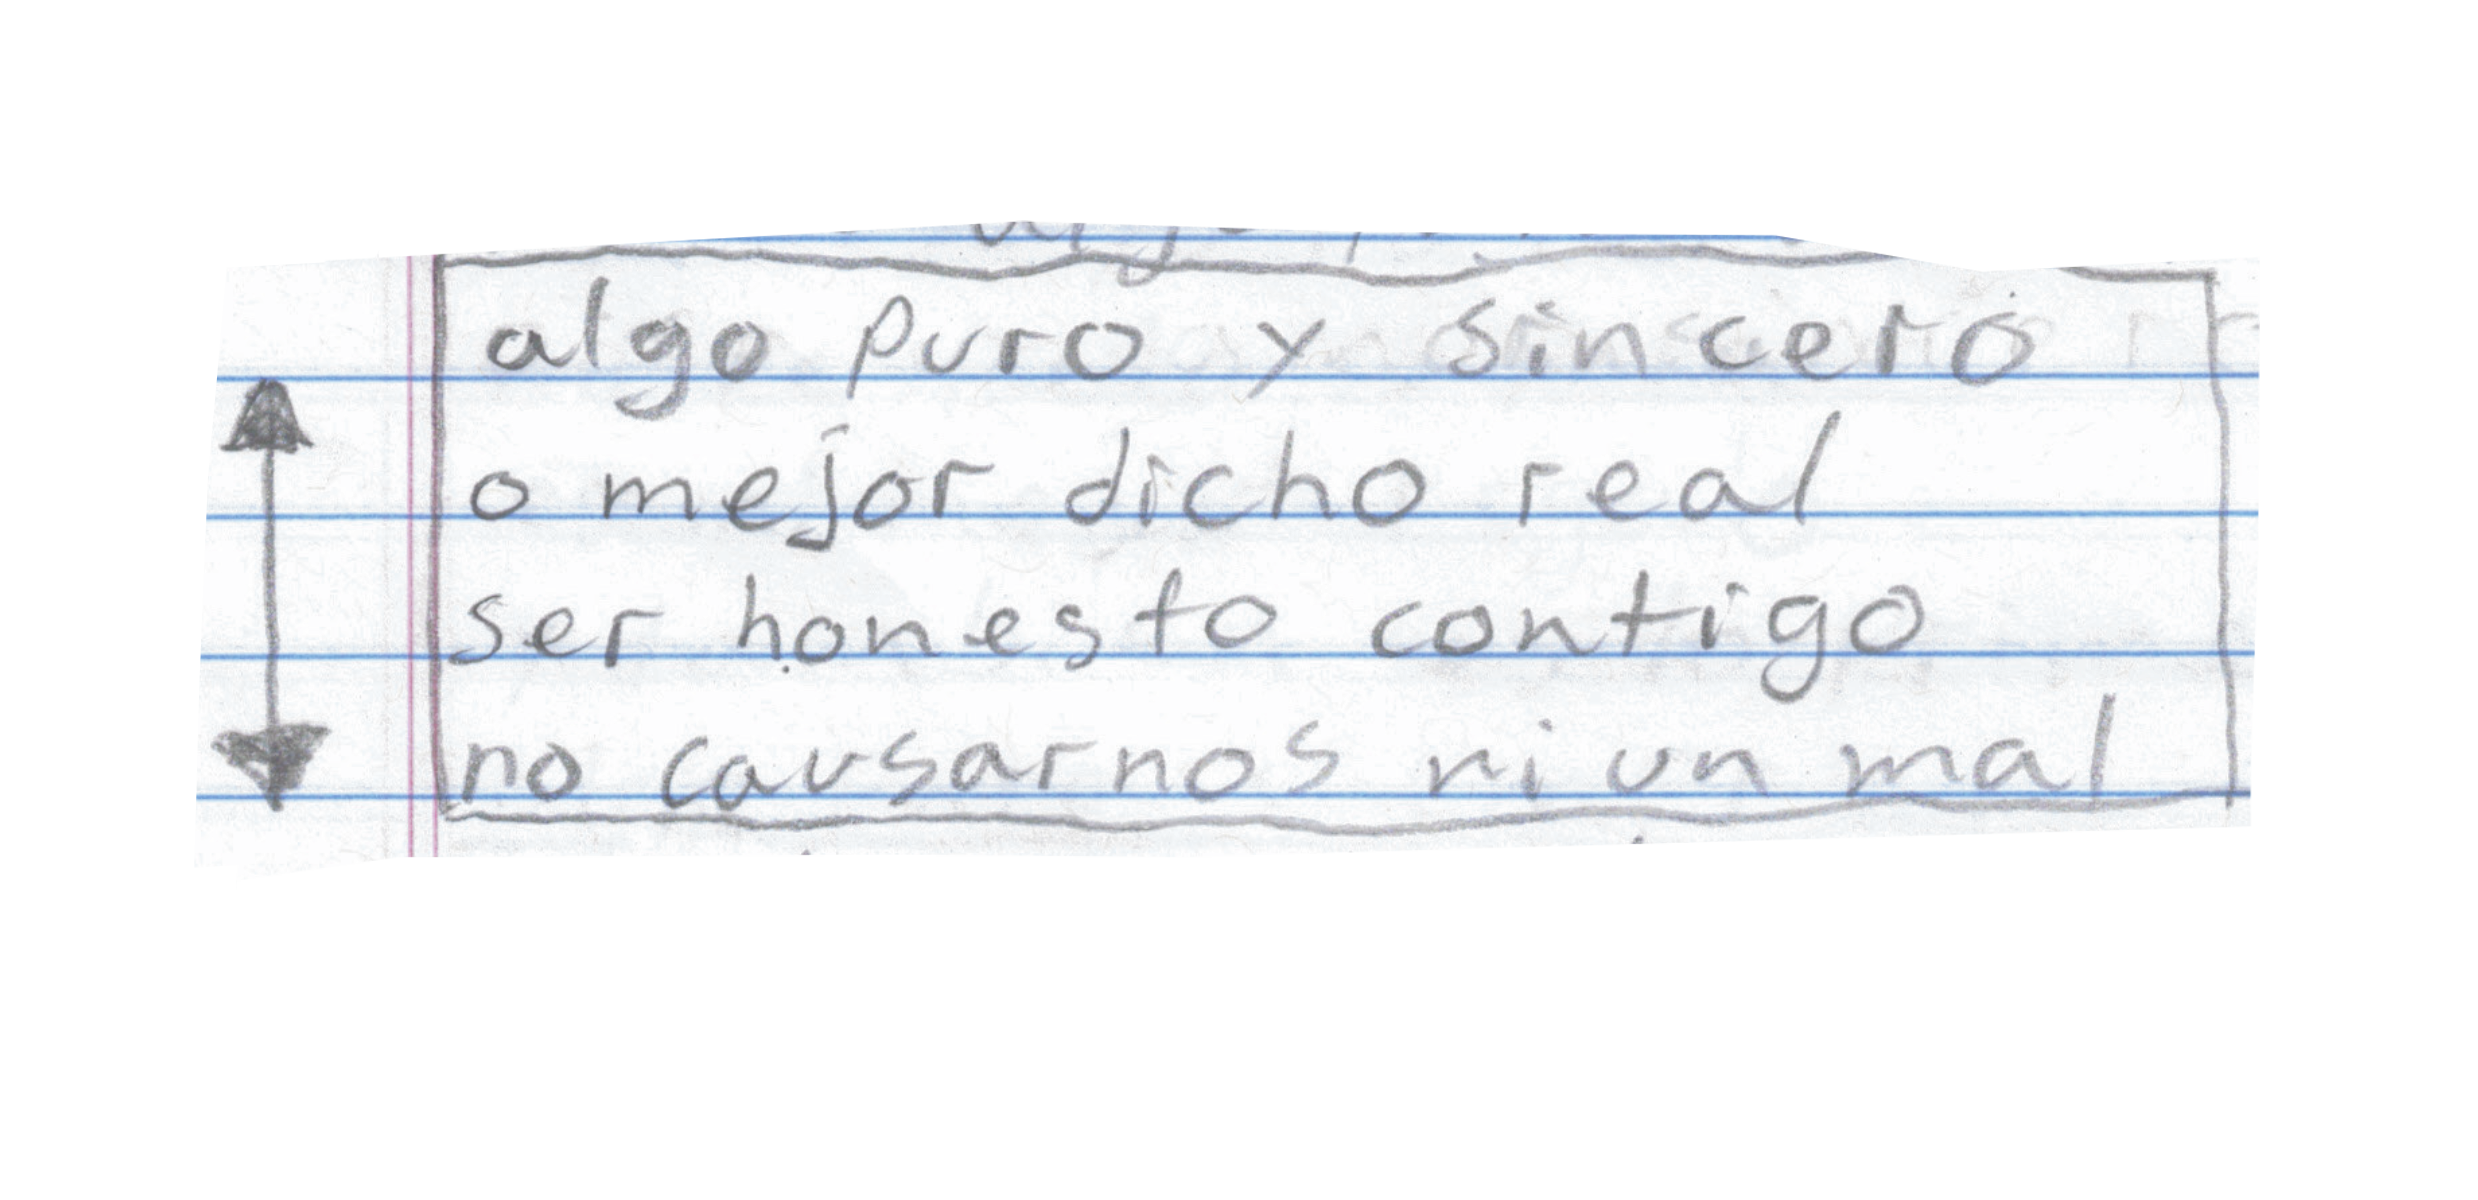 algo puro y sincero
o mejor dicho real
ser honesto contigo
no causarnos ni un mal